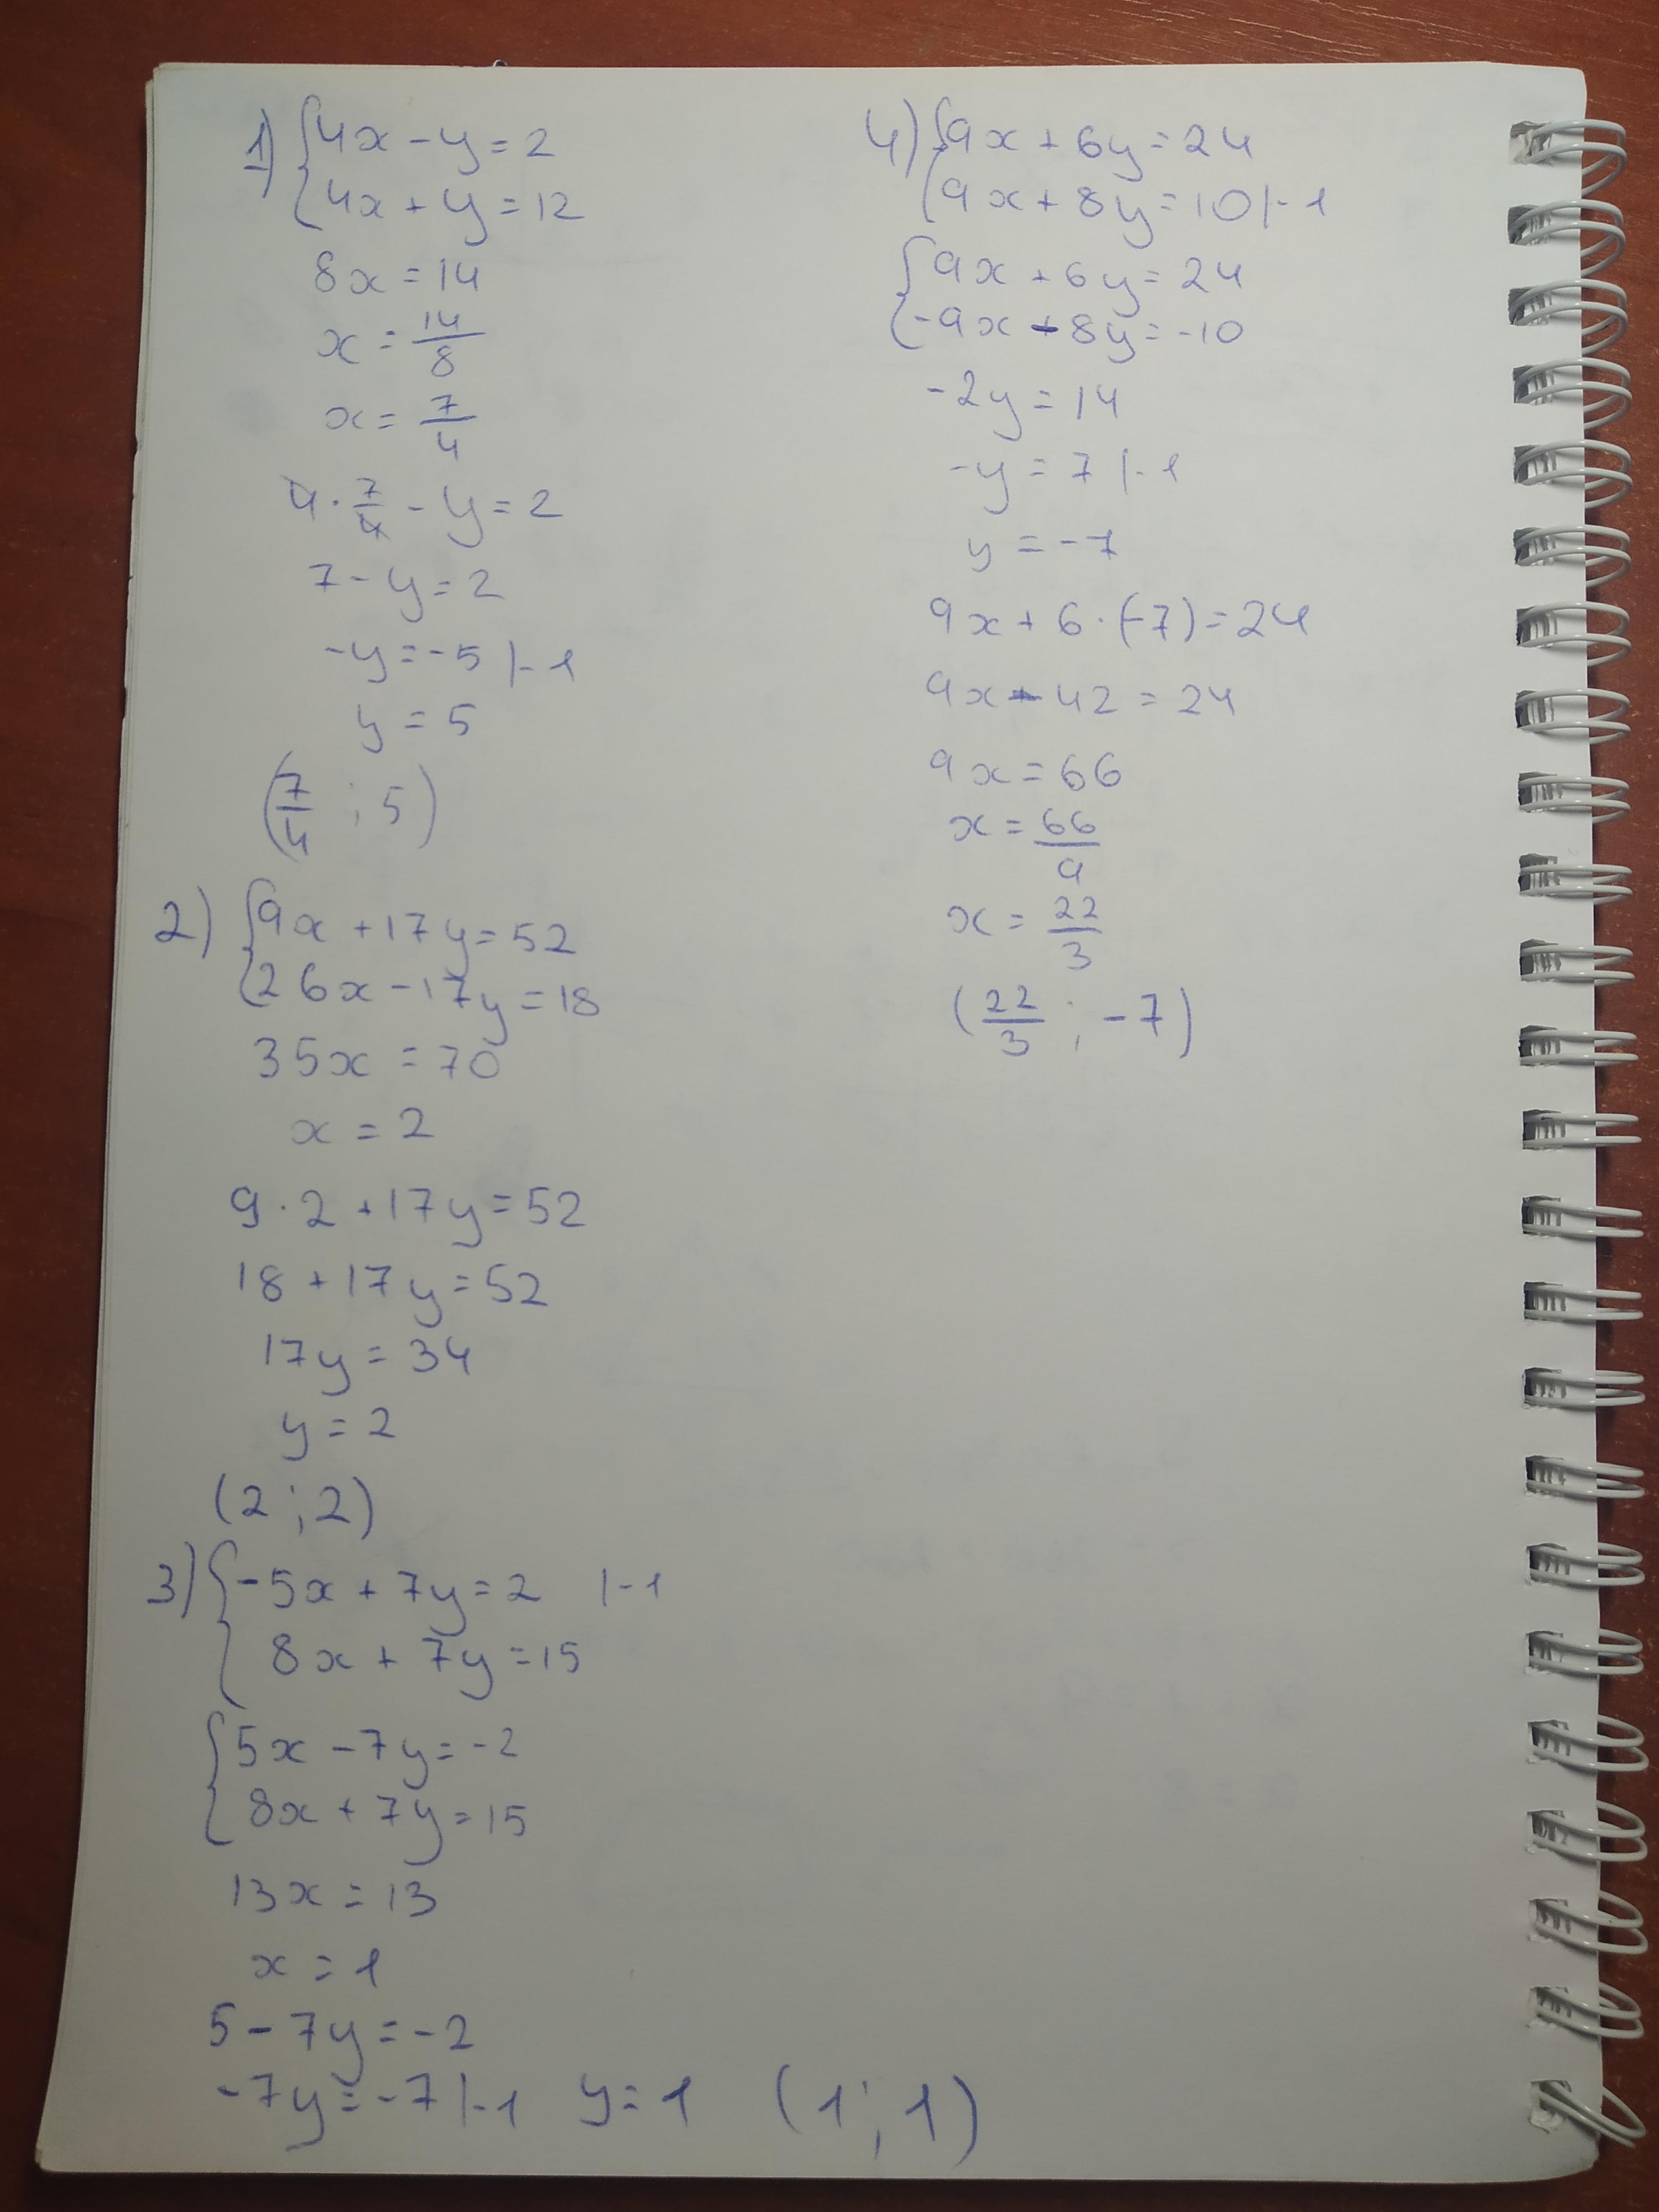 1) {4x - y = 2
{4x + y = 12
8x = 14
x = 14/8
x = 7/4
4 · 7/4 - y = 2
7 - y = 2
-y = -5 |·-1
y = 5
(7/4 ; 5)
2) {9x + 17y = 52
{26x - 17y = 18
35x = 70
x = 2
9 · 2 + 17y = 52
18 + 17y = 52
17y = 34
y = 2
(2 ; 2)
3) {-5x + 7y = 2 |·-1
{8x + 7y = 15
{5x - 7y = -2
{8x + 7y = 15
13x = 13
x = 1
5 - 7y = -2
-7y = -7 |·-1 y = 1 (1 ; 1)
4) {9x + 6y = 24
{9x + 8y = 10 |·-1
{9x + 6y = 24
{-9x - 8y = -10
-2y = 14
-y = 7 |·-1
y = -7
9x + 6 · (-7) = 24
9x - 42 = 24
9x = 66
x = 66/9
x = 22/3
(22/3 ; -7)